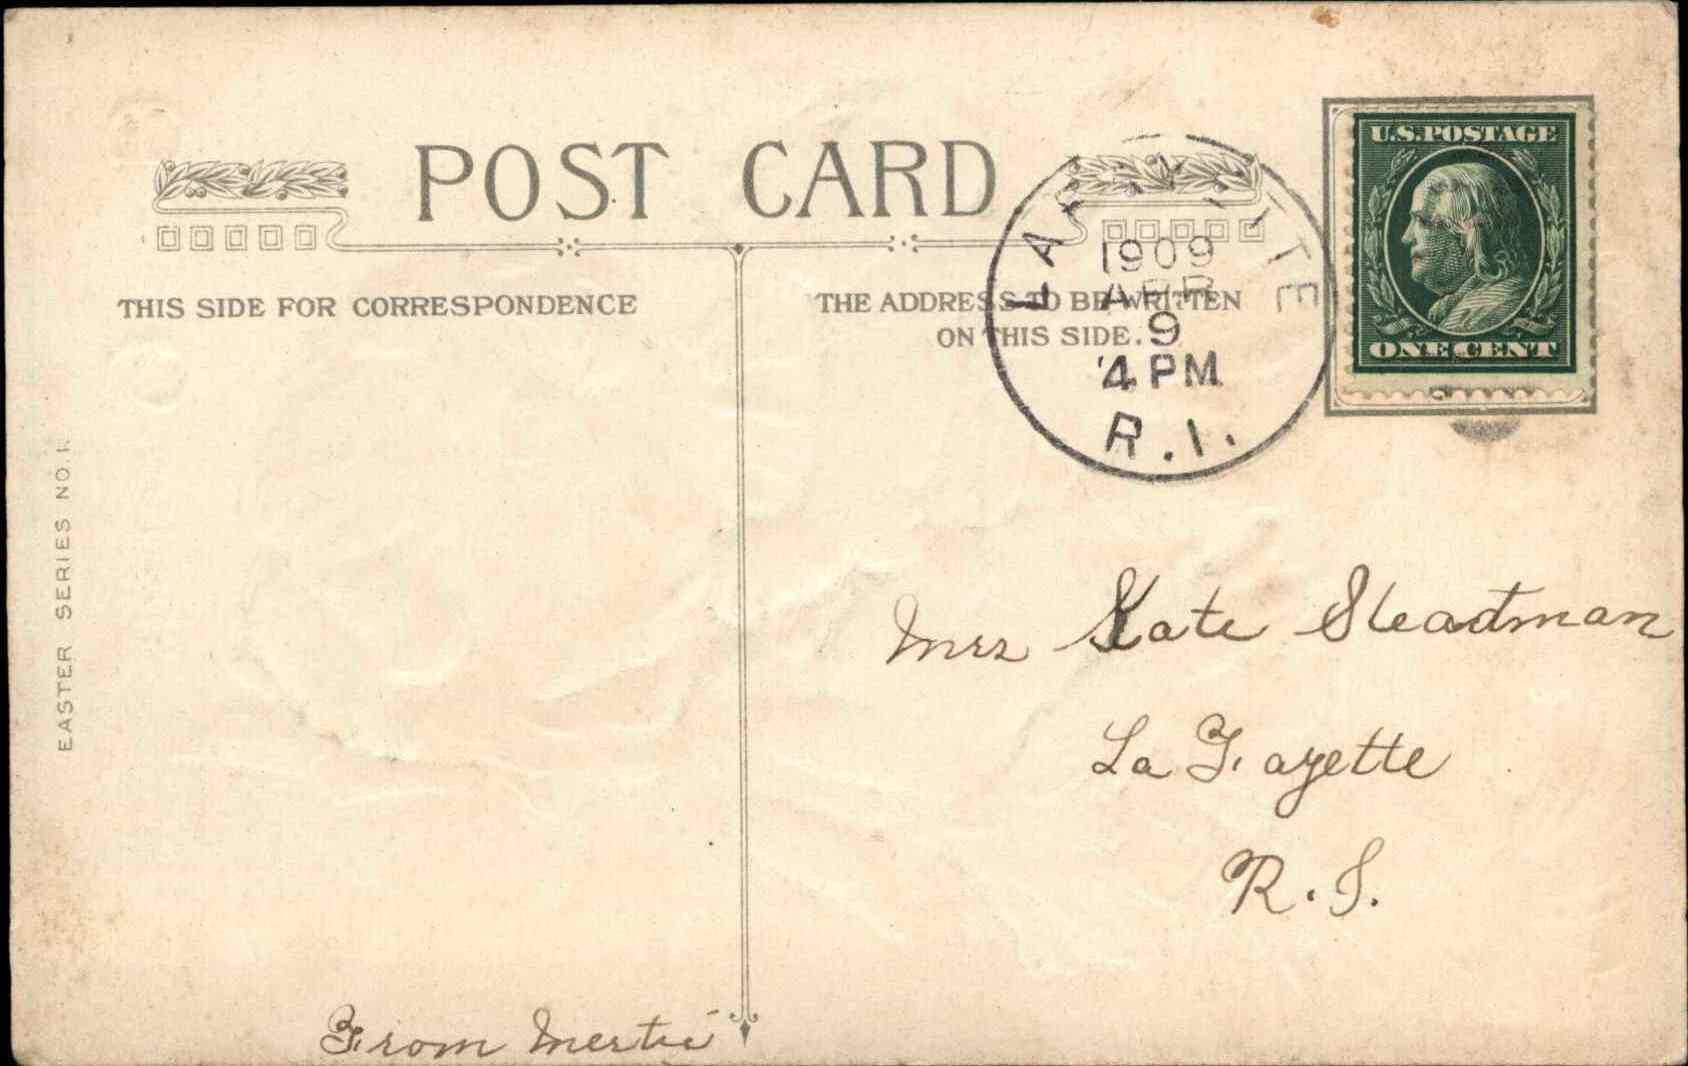 POST CARD
THIS SIDE FOR CORRESPONDENCE
THE ADDRESS TO BE WRITTEN
ON THIS SIDE.
U.S. POSTAGE
ONE CENT
LAFAYETTE
1909
APR
9
4 PM
R.I.
EASTER SERIES NO. 1.
Mrs Kate Steadman
La Fayette
R. I.
From Mertie